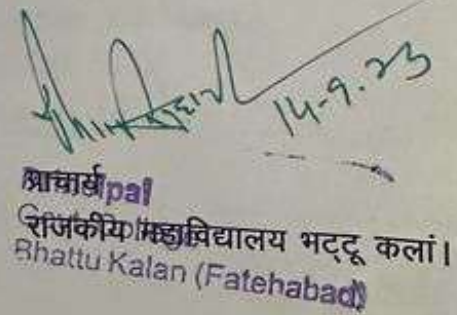 14-9-23
प्राचार्य
Principal
राजकीय महाविद्यालय भट्टू कलां।
Bhattu Kalan (Fatehabad)